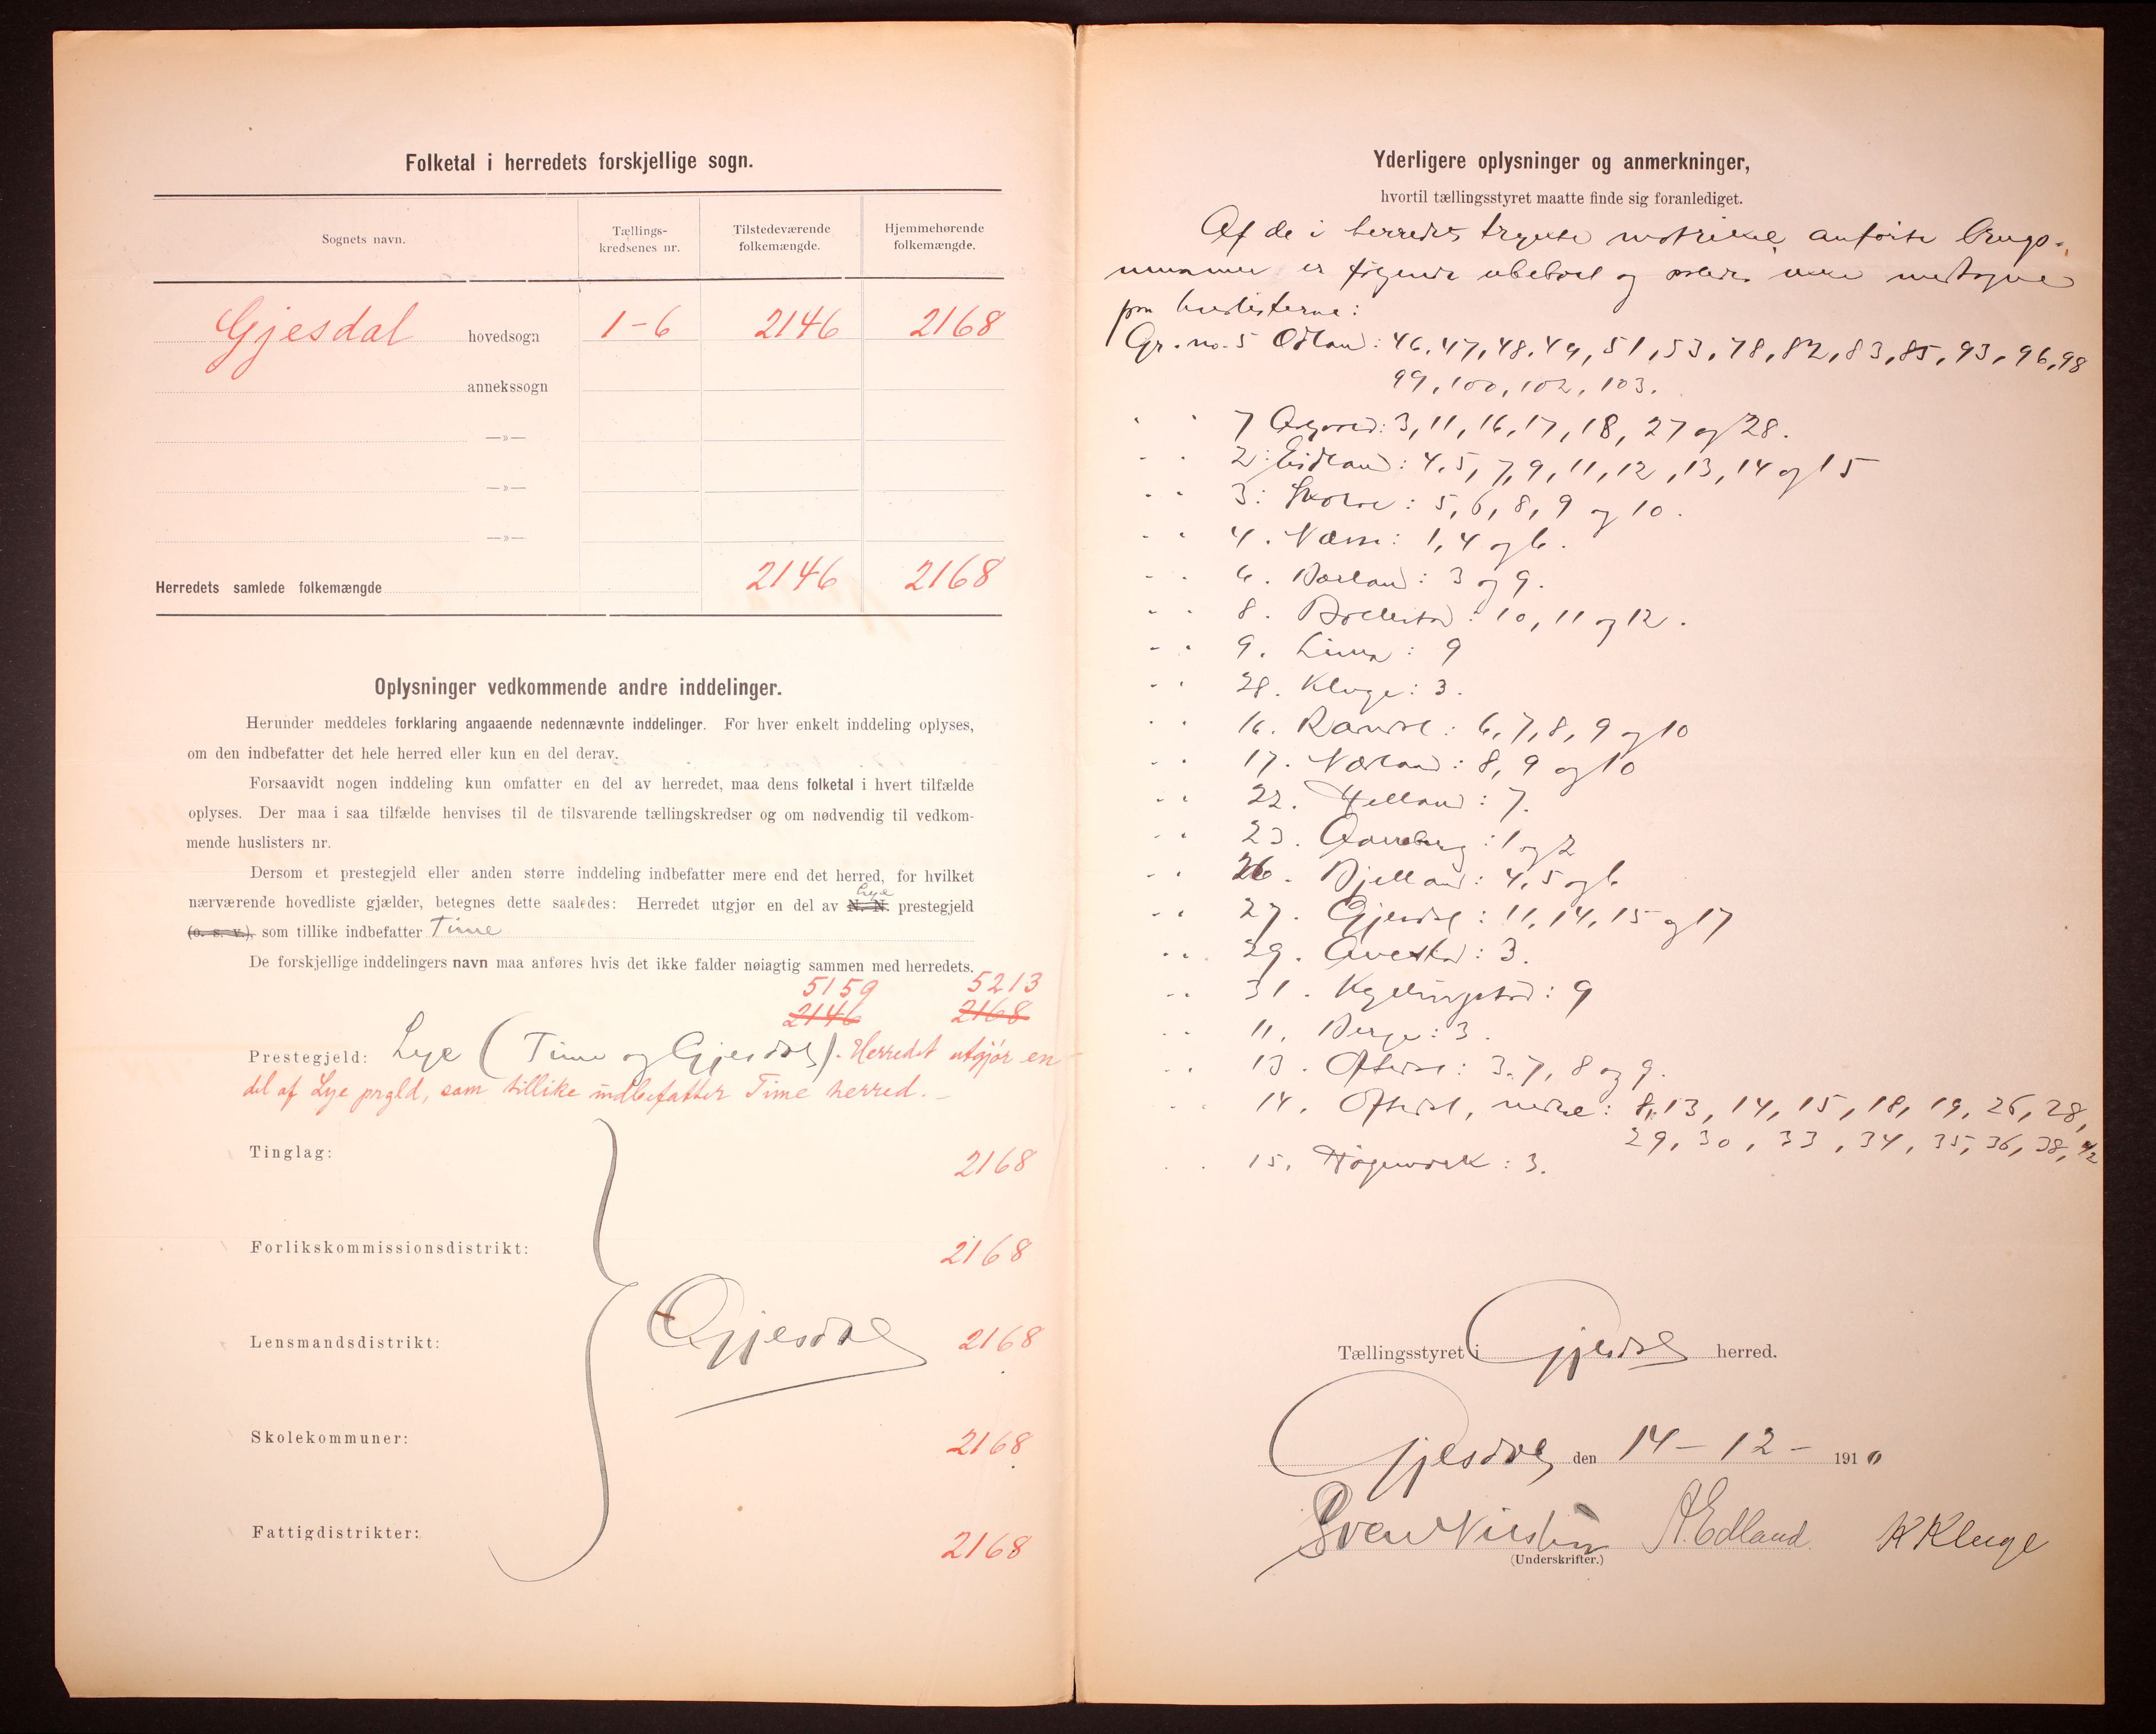 Folketal i herredets forskjellige sogn.
Sognets navn.
Tællings-
kredsenes nr.
Tilstedeværende
folkemængde.
Hjemmehørende
folkemængde.
Gjesdal hovedsogn 1-6 2146 2168
annekssogn
—»—
—»—
—»—
Herredets samlede folkemængde 2146 2168
Oplysninger vedkommende andre inddelinger.
Herunder meddeles forklaring angaaende nedennævnte inddelinger. For hver enkelt inddeling oplyses,
om den indbefatter det hele herred eller kun en del derav.
Forsaavidt nogen inddeling kun omfatter en del av herredet, maa dens folketal i hvert tilfælde
oplyses. Der maa i saa tilfælde henvises til de tilsvarende tællingskredser og om nødvendig til vedkom-
mende huslisters nr.
Dersom et prestegjeld eller anden større inddeling indbefatter mere end det herred, for hvilket
Lye
nærværende hovedliste gjælder, betegnes dette saaledes: Herredet utgjør en del av N. N. prestegjeld
(o. s. v.), som tillike indbefatter Time
De forskjellige inddelingers navn maa anføres hvis det ikke falder nøiagtig sammen med herredets.
5159 5213
2146 2168
Prestegjeld: Lye (Time og Gjesdal). Herredet utgjør en
del af Lye prgld, som tillike indbefatter Time herred. –
Tinglag: 2168
Forlikskommissionsdistrikt: 2168
Lensmandsdistrikt: Gjesdal 2168
Skolekommuner: 2168
Fattigdistrikter: 2168
Yderligere oplysninger og anmerkninger,
hvortil tællingsstyret maatte finde sig foranlediget.
Af de i herredets trykte matrikel anførte brugs-
nummer er følgende ubeboet og ikke medtagne
paa huslisterne:
Gr. no. 5 Ødland: 46, 47, 48, 49, 51, 53, 78, 82, 83, 85, 93, 96, 98
99, 100, 102, 103.
" " 7 : 3, 11, 16, 17, 18, 27 og 28.
" " 2: Eidland: 4, 5, 7, 9, 11, 12, 13, 14 og 15
" " 3: : 5, 6, 8, 9 og 10.
" " 4. Næsse: 1, 4 og 6.
" " 6. : 3 og 9.
" " 8. : 10, 11 og 12.
" " 9. Lima: 9
" " 28. Kluge: 3.
" " 16. : 6, 7, 8, 9 og 10
" " 17. Nærland: 8, 9 og 10
" " 22. Helland: 7.
" " 23. : 1 og 2
" " 26. Bjelland: 4, 5 og 6
" " 27. Gjesdal: 11, 14, 15 og 17
" " 29. : 3.
" " 31. Kyllingstad: 9
" " 11. Berge: 3.
" " 13. Oftedal: 3, 7, 8 og 9.
" " 14. Oftedal, nedre: 8, 13, 14, 15, 18, 19, 26, 28,
29, 30, 33, 34, 35, 36, 38, 42
" " 15. : 3.
Tællingsstyret i Gjesdal herred.
Gjesdal den 14 – 12 – 1910
Sven A. Edland. K Kluge
(Underskrifter.)